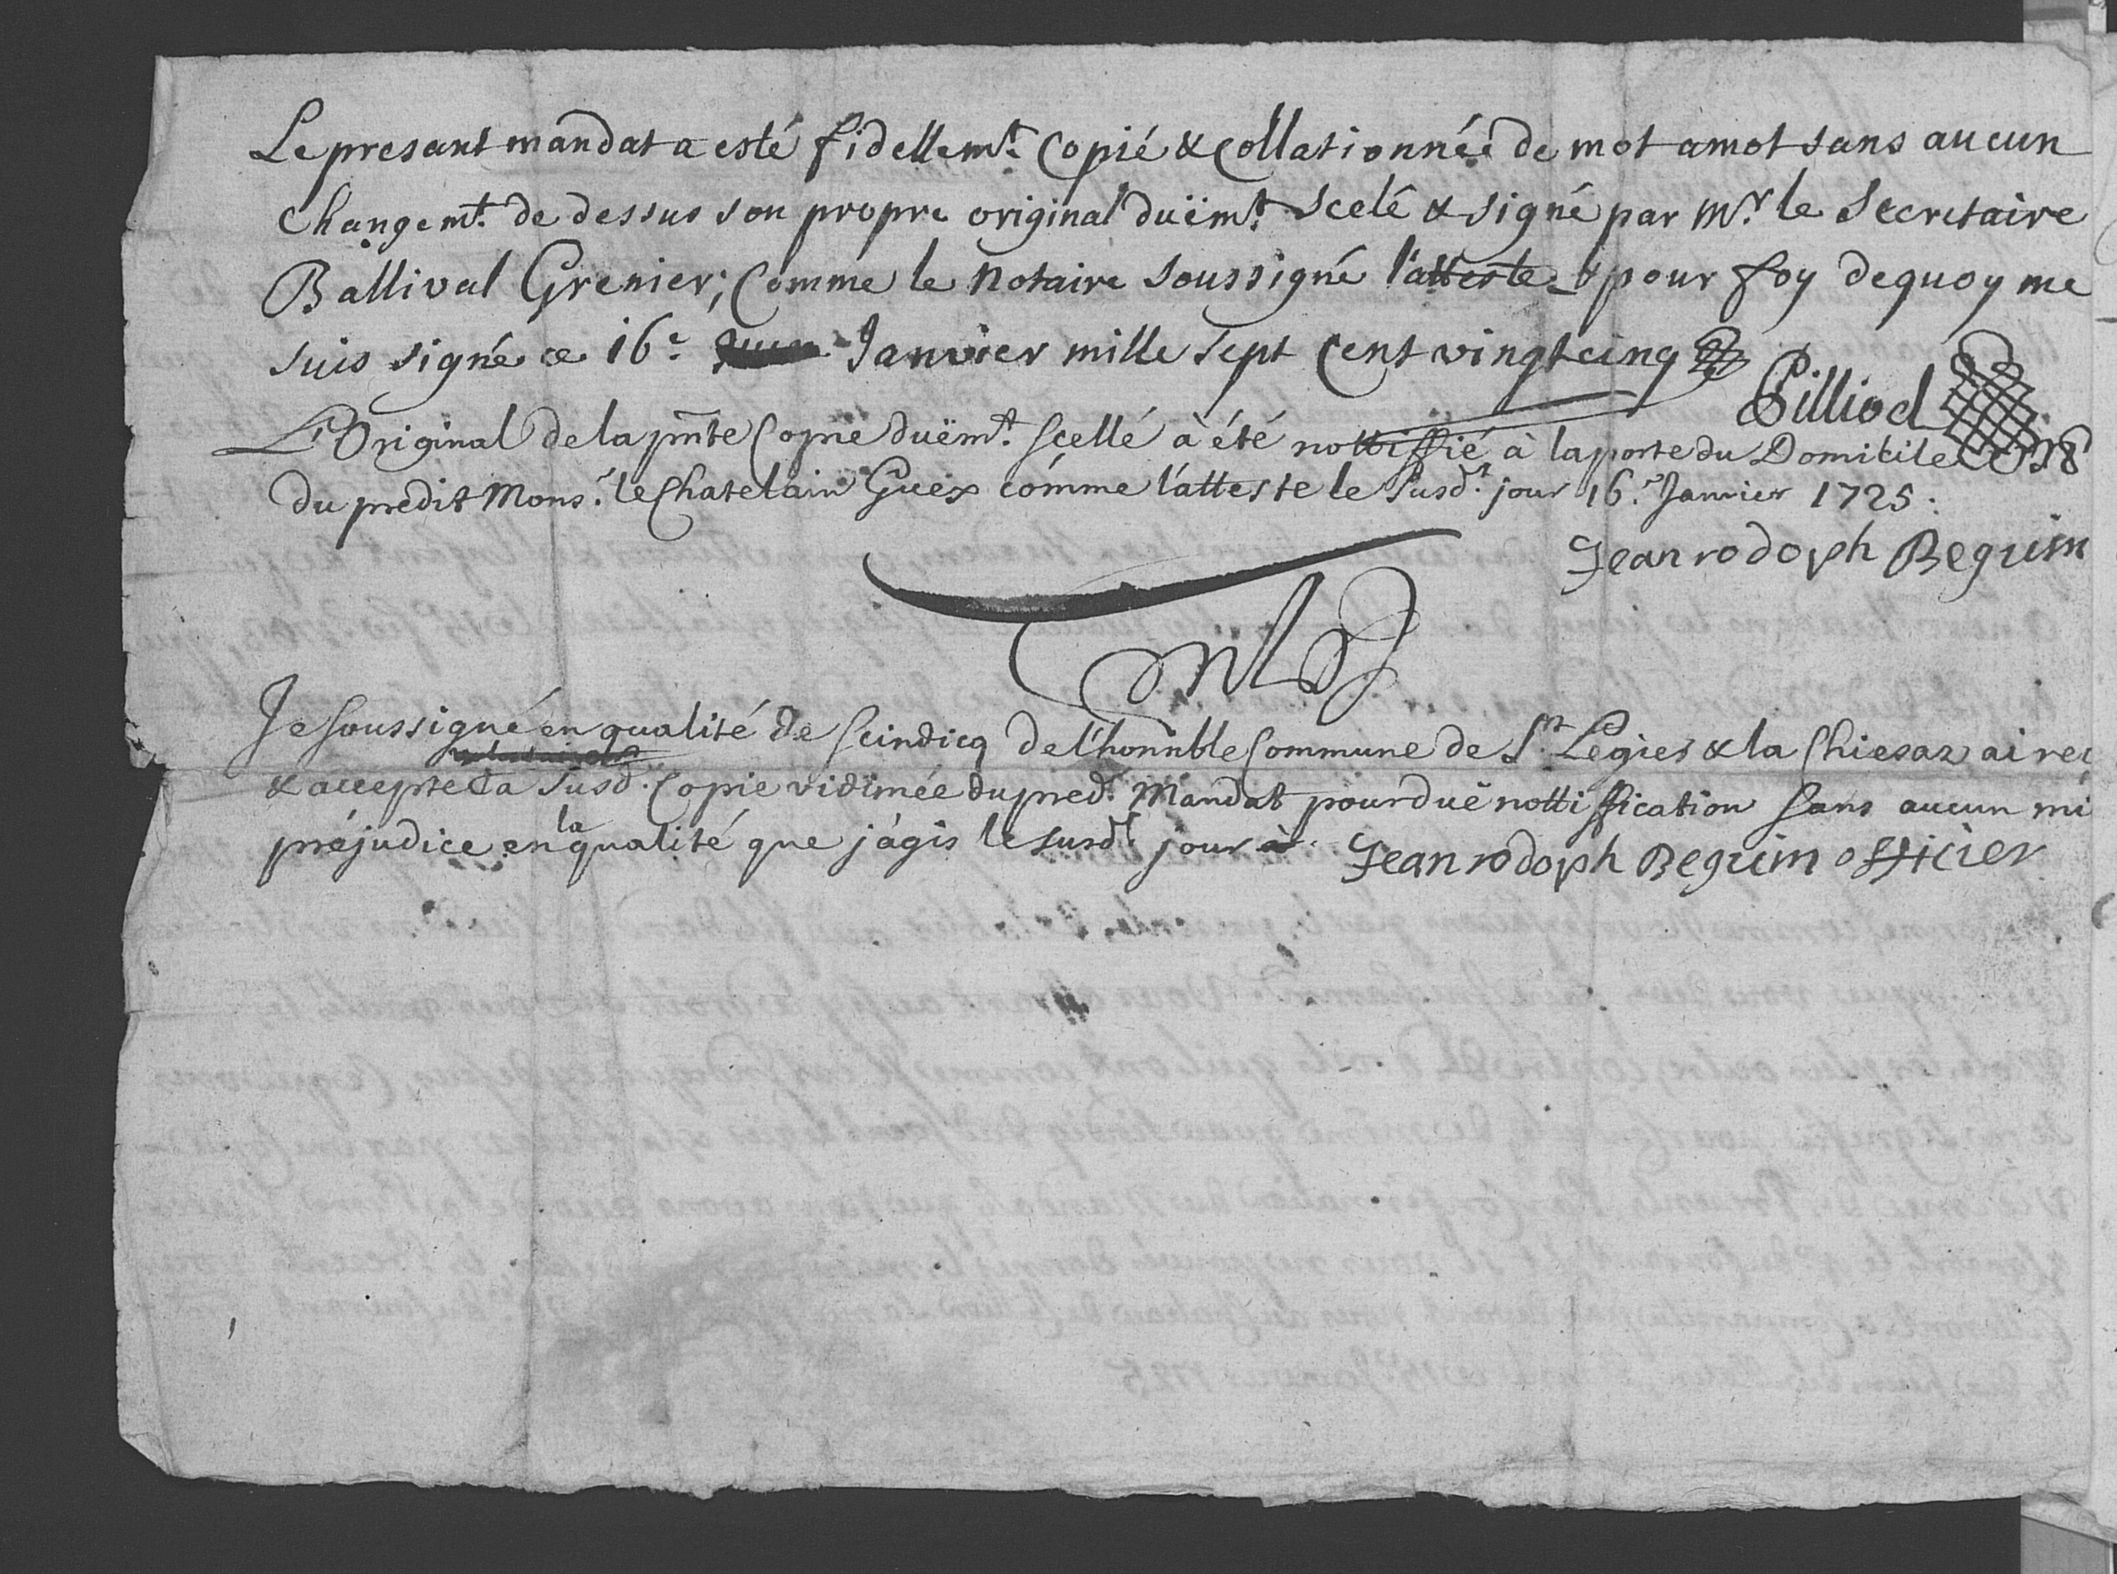 Le presant mandat a esté fidellemt. Copié & Collationnée de mot amot sans aucun
Changemt. de dessus son propre original duëmt. Scelé & signé par Mr. le Secretaire
Ballival Grenier; Comme le Notaire soussigné l'atteste, & pour foy dequoy me
suis signé ce 16e. Janvier mille sept Cent vingt cinq
Pilliod
L'Original de la pnte Copie duëmt. scellé à été nottiffié à la porte du Domicile
du predit Monsr. le Chatelain Guex comme l'atteste le susdt. jour 16e. Janvier 1725.
Jean rodolph Beguin
Je soussigné en qualité de scindicq de l'honnble Commune de St. Legier & la Chiesaz ai
& accepte la susdt. Copie vidimée du predt. Mandat pour duë nottiffication sans aucun mi
préjudice en la qualité que j'agis le susdt jour
Jean rodolph Beguin officier